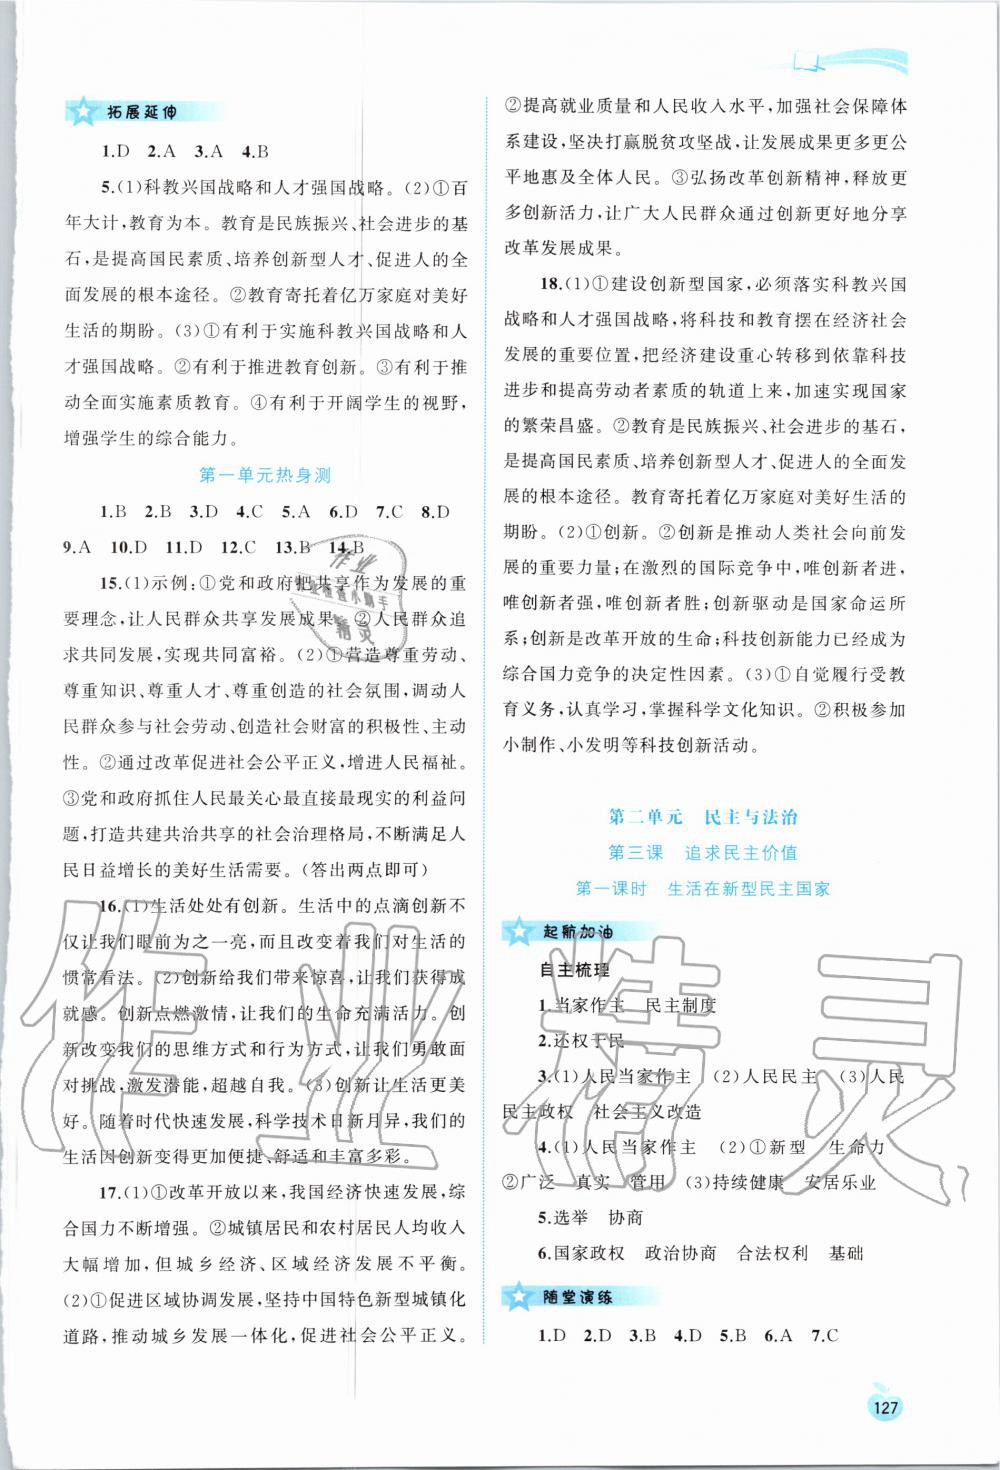 拓展延伸
1.D 2.A 3.A 4.B
5.(1)科教兴国战略和人才强国战略。(2)①百
年大计,教育为本。教育是民族振兴、社会进步的基
石,是提高国民素质、培养创新型人才、促进人的全
面发展的根本途径。②教育寄托着亿万家庭对美好
生活的期盼。(3)①有利于实施科教兴国战略和人
才强国战略。②有利于推进教育创新。③有利于推
动全面实施素质教育。④有利于开阔学生的视野,
增强学生的综合能力。
第一单元热身测
1.B 2.B 3.D 4.C 5.A 6.D 7.C 8.D
9.A 10.D 11.D 12.C 13.B 14.B
15.(1)示例:①党和政府把共享作为发展的重
要理念,让人民群众共享发展成果。②人民群众追
求共同发展,实现共同富裕。(2)①营造尊重劳动、
尊重知识、尊重人才、尊重创造的社会氛围,调动人
民群众参与社会劳动、创造社会财富的积极性、主动
性。②通过改革促进社会公平正义,增进人民福祉。
③党和政府抓住人民最关心最直接最现实的利益问
题,打造共建共治共享的社会治理格局,不断满足人
民日益增长的美好生活需要。(答出两点即可)
16.(1)生活处处有创新。生活中的点滴创新不
仅让我们眼前为之一亮,而且改变着我们对生活的
惯常看法。(2)创新给我们带来惊喜,让我们获得成
就感。创新点燃激情,让我们的生命充满活力。创
新改变我们的思维方式和行为方式,让我们勇敢面
对挑战,激发潜能,超越自我。(3)创新让生活更美
好。随着时代快速发展,科学技术日新月异,我们的
生活因创新变得更加便捷、舒适和丰富多彩。
17.(1)①改革开放以来,我国经济快速发展,综
合国力不断增强。②城镇居民和农村居民人均收入
大幅增加,但城乡经济、区域经济发展不平衡。
(2)①促进区域协调发展,坚持中国特色新型城镇化
道路,推动城乡发展一体化,促进社会公平正义。
②提高就业质量和人民收入水平,加强社会保障体
系建设,坚决打赢脱贫攻坚战,让发展成果更多更公
平地惠及全体人民。③弘扬改革创新精神,释放更
多创新活力,让广大人民群众通过创新更好地分享
改革发展成果。
18.(1)①建设创新型国家,必须落实科教兴国
战略和人才强国战略,将科技和教育摆在经济社会
发展的重要位置,把经济建设重心转移到依靠科技
进步和提高劳动者素质的轨道上来,加速实现国家
的繁荣昌盛。②教育是民族振兴、社会进步的基石,
是提高国民素质、培养创新型人才、促进人的全面发展
的根本途径。教育寄托着亿万家庭对美好生活的
期盼。(2)①创新。②创新是推动人类社会向前发
展的重要力量;在激烈的国际竞争中,唯创新者进,
唯创新者强,唯创新者胜;创新驱动是国家命运所
系;创新是改革开放的生命;科技创新能力已经成为
综合国力竞争的决定性因素。(3)①自觉履行受教
育义务,认真学习,掌握科学文化知识。②积极参加
小制作、小发明等科技创新活动。
第二单元 民主与法治
第三课 追求民主价值
第一课时 生活在新型民主国家
起航加油
自主梳理
1.当家作主 民主制度
2.还权于民
3.(1)人民当家作主 (2)人民民主 (3)人民
民主政权 社会主义改造
4.(1)人民当家作主 (2)①新型 生命力
②广泛 真实 管用 (3)持续健康 安居乐业
5.选举 协商
6.国家政权 政治协商 合法权利 基础
随堂演练
1.D 2.D 3.B 4.D 5.B 6.A 7.C
127
作业精灵